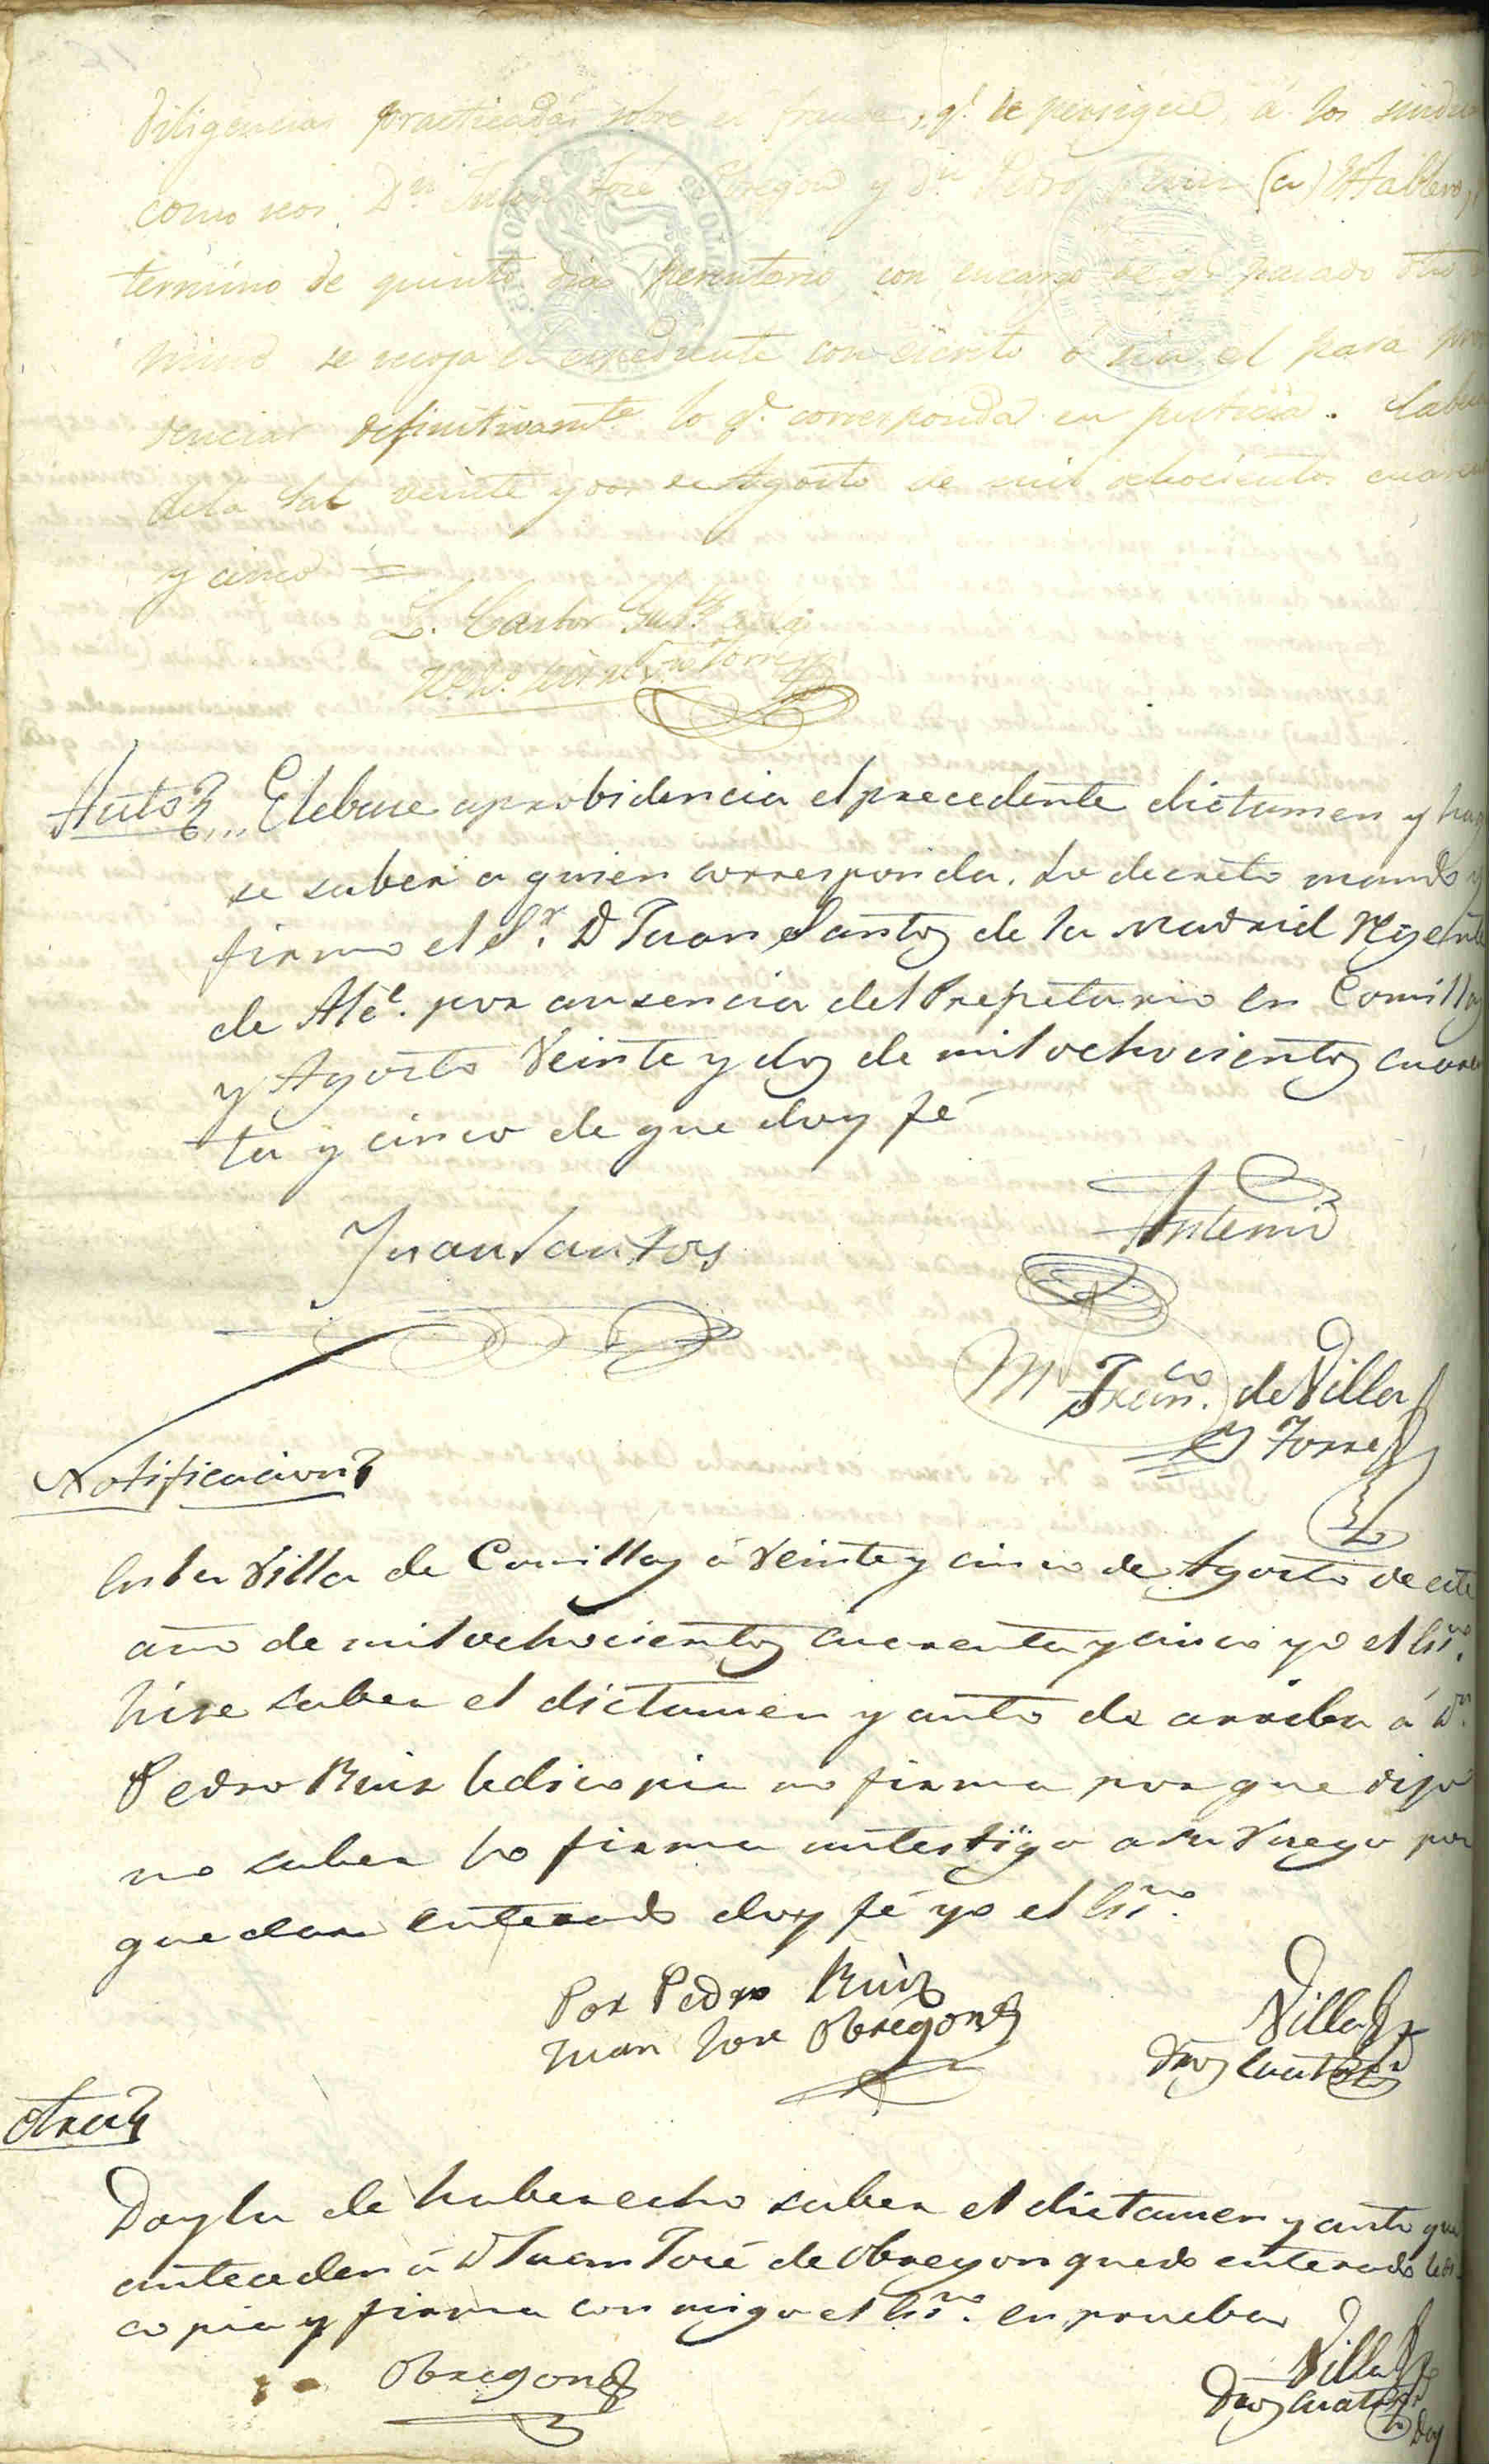 diligencias practicadas sobre el fraude, q.e se persigue, á los sindi
como reos, D.n Juan José Obregon y D.n Pedro Ruiz (a) Hablero,
termino de quinto dia perentorio, con encargo de q.e pasado dho
mino se recoja el expediente con escrito ó sin el para pro
denciar definitivam.te lo q.e corresponda en justicia. Cabe
dela Sal veinte y dos de Agosto de mil ochocientos cuare
y cinco =
L. Castor Gut.z dela
Torre
Auto... Elebase aprobidencia el precedente dictamen y hag
se saber a quien corresponda. Lo decreto mando y
firmo el S.r D Juan Santos de la Madrid Rejente
de Alc.e por ausencia del Propetario en Comillas
y Agosto Veinte y dos de mil ochocientos cuaren
ta y cinco de que doy fé
Juan Santos
Antemi
M Fran.co de Villa
y Torre
Notificacion
En la Villa de Comillas á Veinte y cinco de Agosto de este
año de mil ochocientos cuarenta y cinco yo el Es.no
hise saber el dictamen y auto de arriba á D.n
Pedro Ruiz le di copia no firma por que dijo
no saber lo firma un testigo a su Ruego por
quedar enterado doy fé yo el Es.no
Por Pedro Ruiz
Juan Jose Obregon
Villa
Dros cuatro
Otra
Doyla de haber echo saber el dictamen y auto que
anteceden á D Juan José de Obregon quedo enterado le di
copia y firma con migo el Es.no en prueba
Obregon
Villa
Dros cuatro